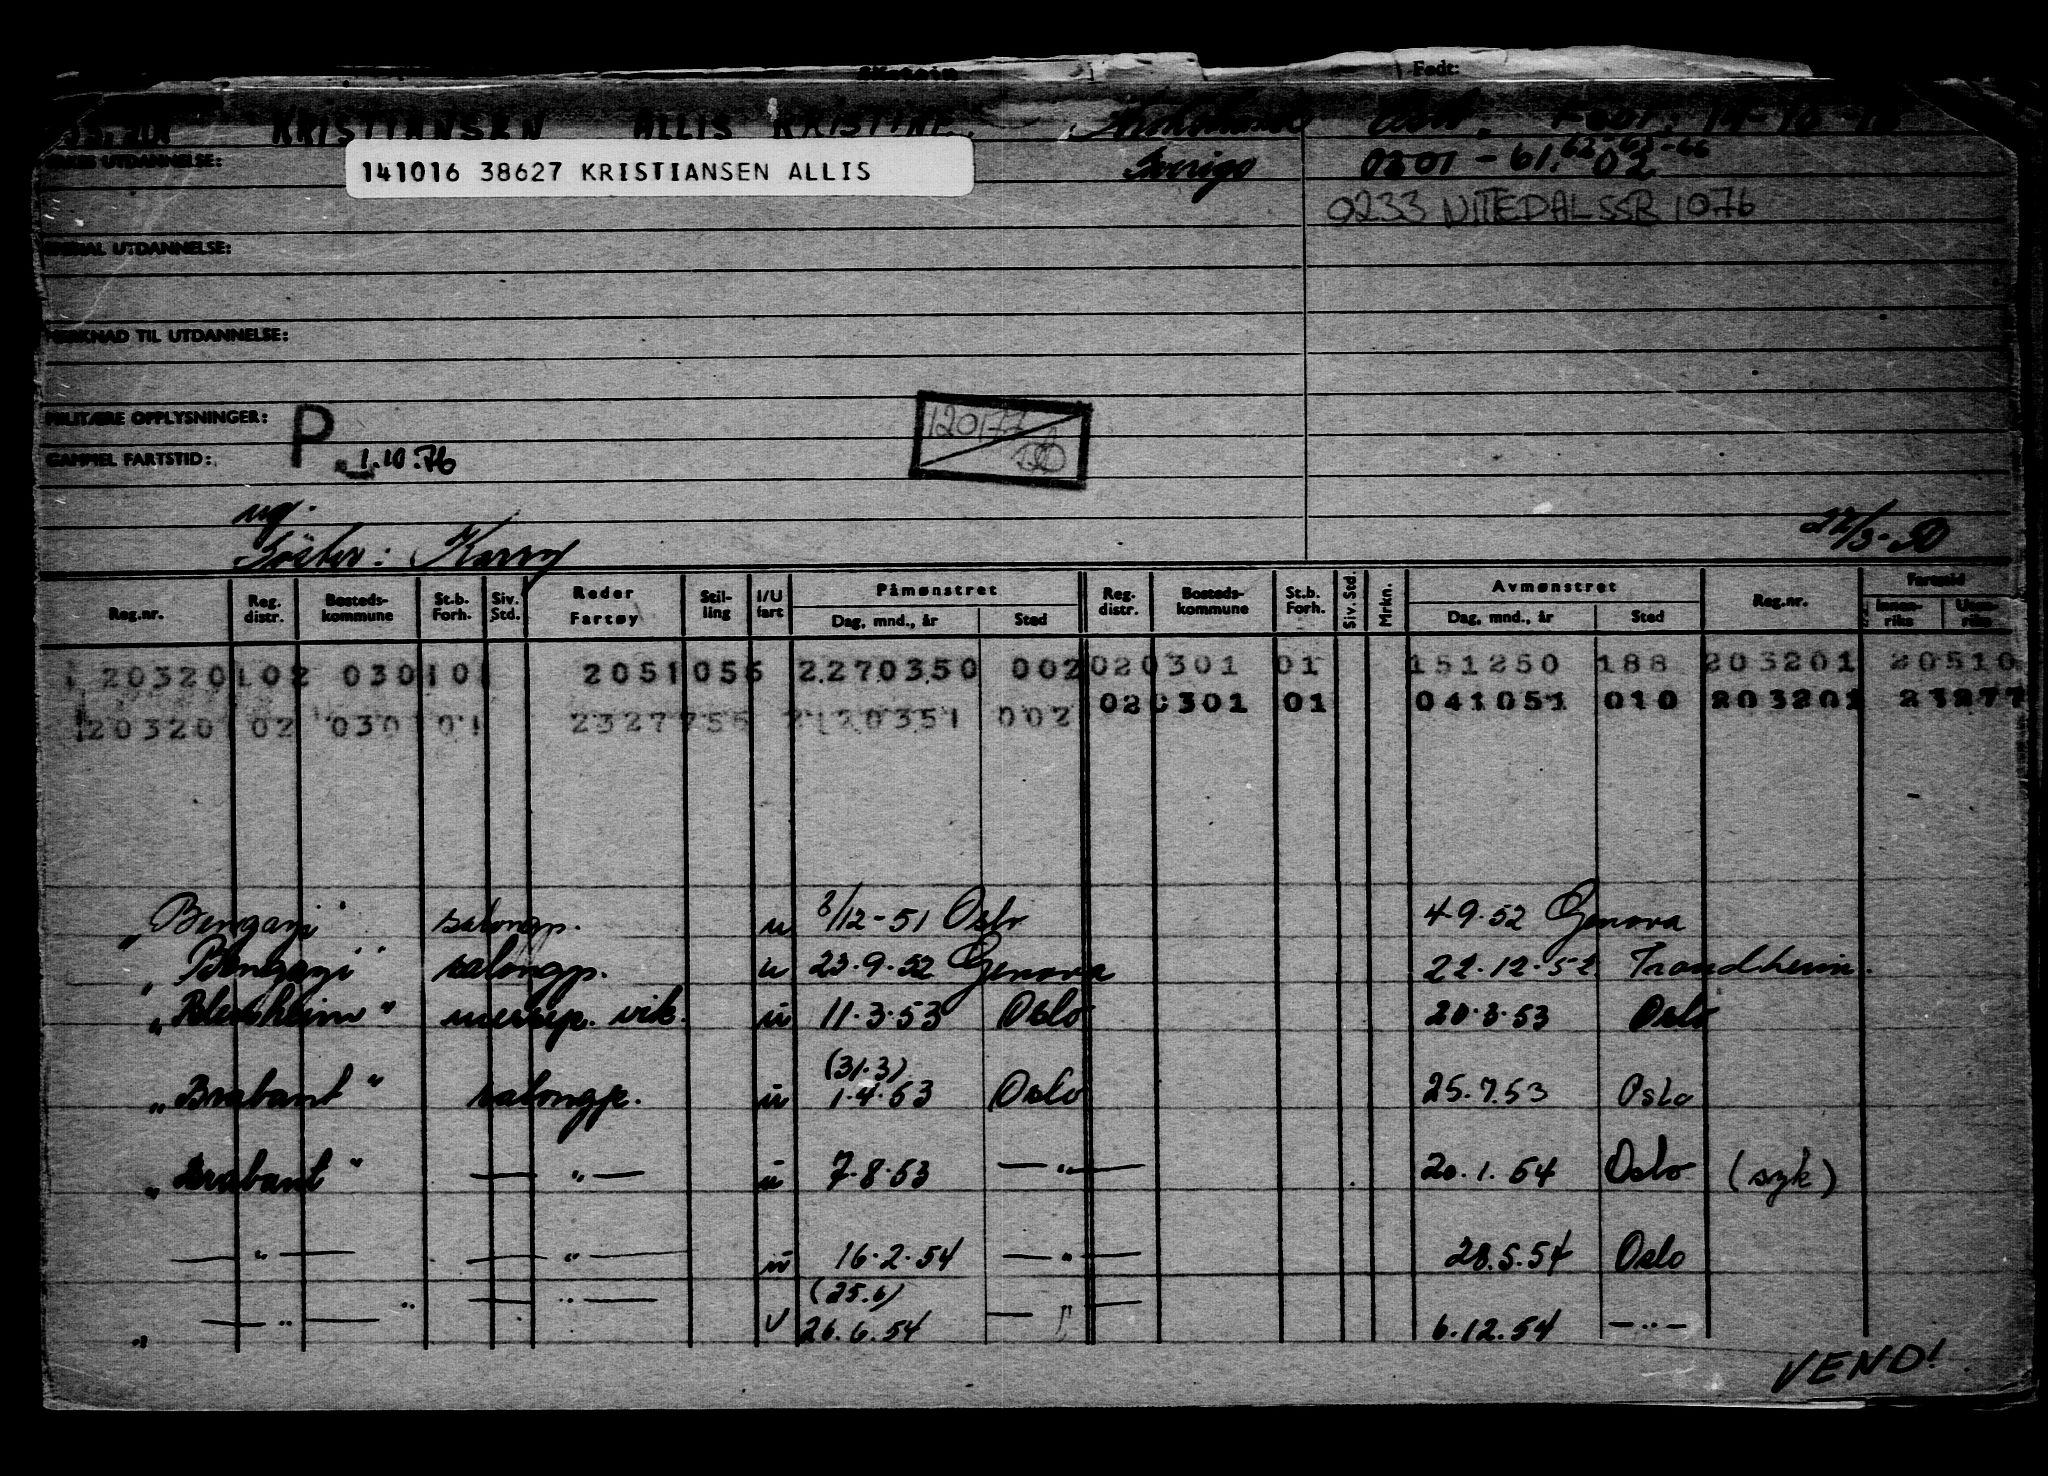 Født:
KRISTIANSEN ALLIS KRISTINE.
141016 38627 KRISTIANSEN ALLIS
Sverige 0301 - 61. 62-63-66 02
0233 NITTEDAL SSR 1076
UTDANNELSE:
UTDANNELSE:
TIL UTDANNELSE:
MILITÆRE OPPLYSNINGER: P
GAMMEL FARTSTID: 1.10.76
120177
ug.
Söster: Karry
22/3-50
Reg.nr. Reg. distr. Bosteds- kommune St.b. Forh. Siv. Std. Reder Fartøy Stil- ling I/U fart Påmønstret Dag, mnd., år Sted Reg. distr. Bosteds- kommune St.b. Forh. Siv. Std. Mrkn. Avmønstret Dag, mnd., år Sted Reg.nr. Fartstid Innen- riks Uten- riks
203201 02 030101 2051056 2270350 002 020301 01 151250 188 203201 20510
020301 01 041051 010 203201 23277
203201 02 0301 01 2327755 2120351 002
"Bengazi" salongp. u 8/12-51 Oslo 4.9.52 Genova
"Bengazi" salongp. u 23.9.52 Genova 22.12.52 Trondheim.
"Blenheim" messep. vik. u 11.3.53 Oslo 20.3.53 Oslo
(31.3)
"Brabant" salongp. u 1.4.53 Oslo 25.7.53 Oslo
"Brabant" — " — u 7.8.53 — " — 20.1.54 Oslo (syk)
— " — — " — u 16.2.54 — " — 28.5.54 Oslo
(25.6)
— " — — " — u 26.6.54 — " — 6.12.54 — " —
VEND!